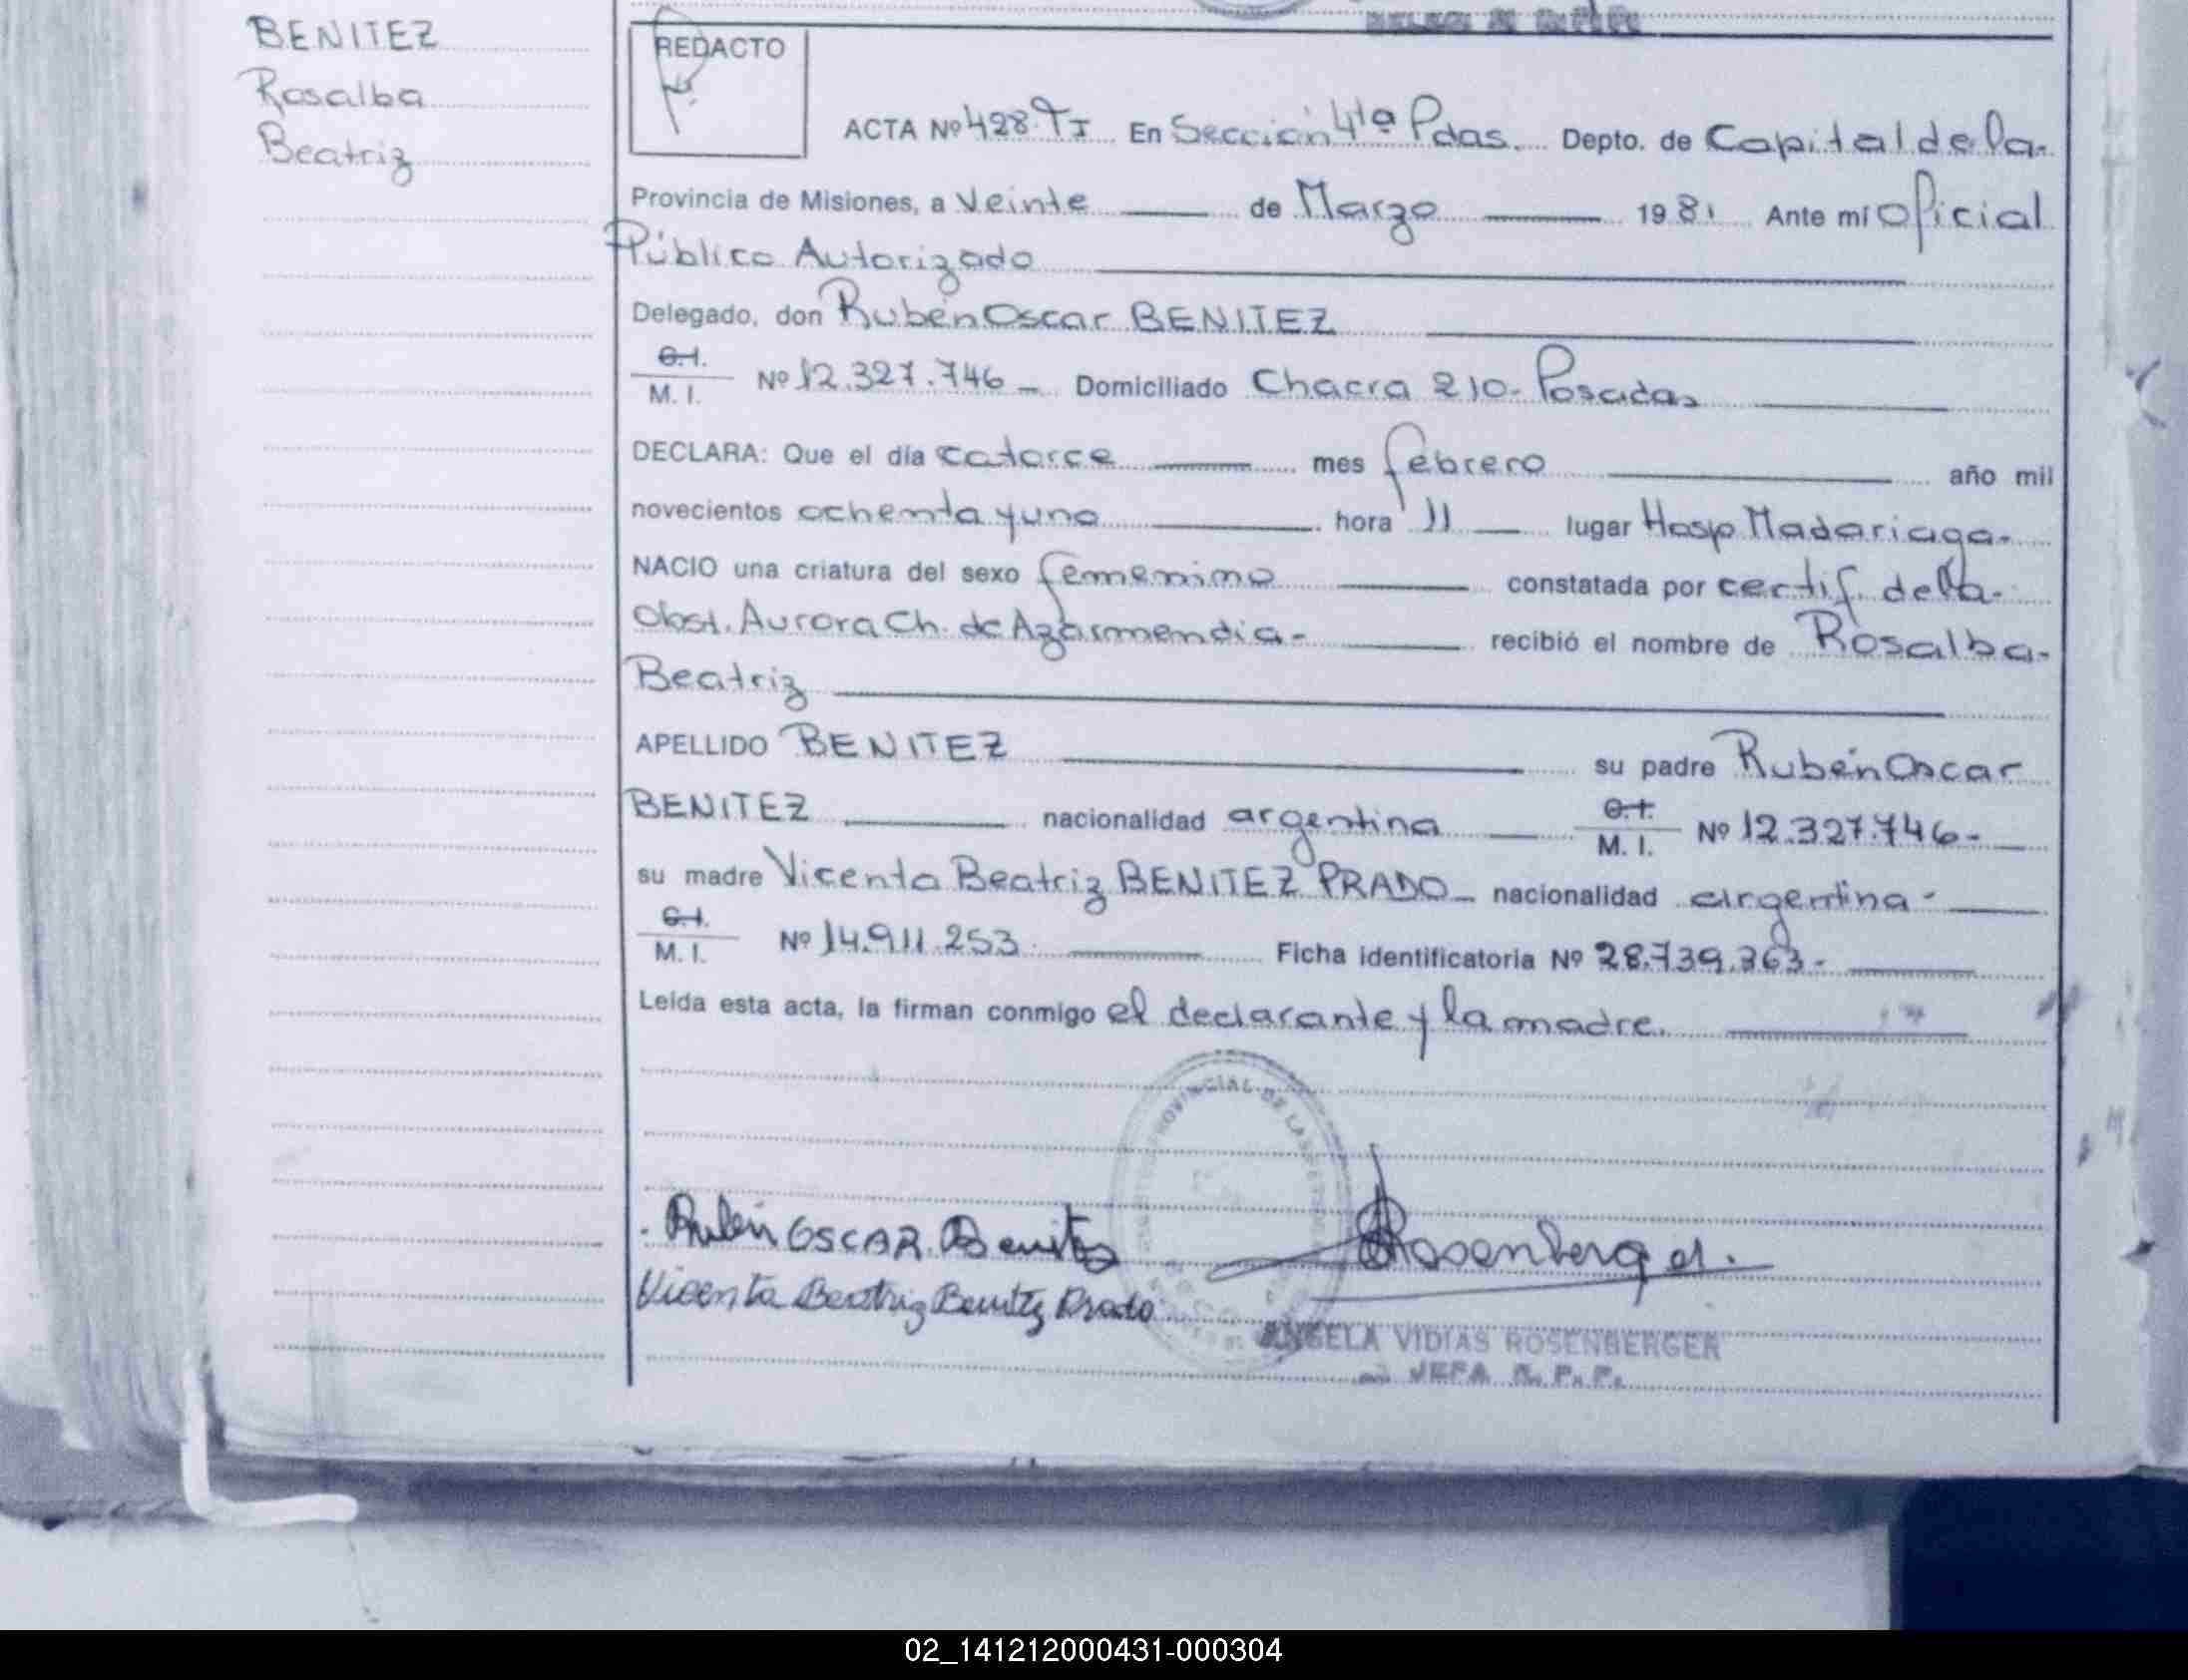 BENITEZ
Rosalba
Beatriz
REDACTO
ACTA Nº 428 TI En Sección 4ta Pdas. Depto. de Capital de la
Provincia de Misiones, a Veinte de Marzo 1981 Ante mí Oficial
Público Autorizado
Delegado, don Rubén Oscar BENITEZ
C.I.
M. I. Nº 12.327.746 - Domiciliado Chacra 210 - Posadas
DECLARA: Que el día catorce mes febrero año mil
novecientos ochenta y uno hora 11 lugar Hosp Madariaga-
NACIO una criatura del sexo femenino constatada por certif. de la-
Obst. Aurora Ch. de Azarmendia- recibió el nombre de Rosalba-
Beatriz
APELLIDO BENITEZ su padre Rubén Oscar
BENITEZ nacionalidad argentina C.I.
M. I. Nº 12.327.746-
su madre Vicenta Beatriz BENITEZ PRADO - nacionalidad argentina -
C.I.
M. I. Nº 14.911.253 Ficha identificatoria Nº 28.739.363-
Leída esta acta, la firman conmigo el declarante y la madre.
PROVINCIAL DE LAS PERSONAS
Rubén OSCAR Benitez
Rosenberger.
Vicenta Beatriz Benitez Prado
ANGELA VIDIAS ROSENBERGER
JEFA R. P. P.
02_141212000431-000304